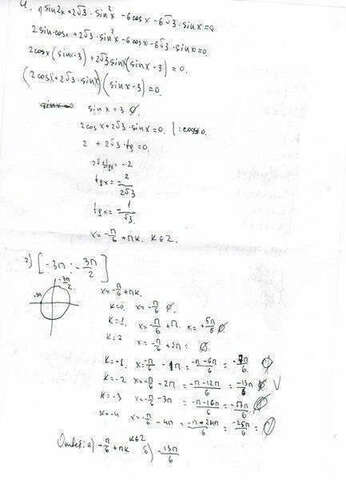 sin2x+2√3·sin²x-6cosx-6√3·sinx=0.
2sinx·cosx+2√3·sin²x-6cosx-6√3·sinx=0.
2cosx(sinx-3)+2√3sinx(sinx-3)=0.
(2cosx+2√3·sinx)(sinx-3)=0.
sinx=3 ∅.
2cosx+2√3·sinx=0. |:cosx≠0.
2+2√3·tgx=0.
2√3tgx=-2
tgx=-2/2√3
tgx=-1/√3.
x=-π/6+πk. k∈Z.
[-3π; -3π/2]
-3π/2
-3π
x=-π/6+πk.
k=0, x=-π/6 ∅.
k=1, x=-π/6+π. x=5π/6 ∅
k=2 x=-π/6+2π= ∅.
k=-1, x=-π/6-1π=-π-6π/6=-7π/6 ∅
k=-2 x=-π/6-2π=-π-12π/6=-13π/6 V
k=-3 x=-π/6-3π=
x=-π/6-4π= =-25π/6
Ответ: а) -π/6+πk k∈Z б) -13π/6